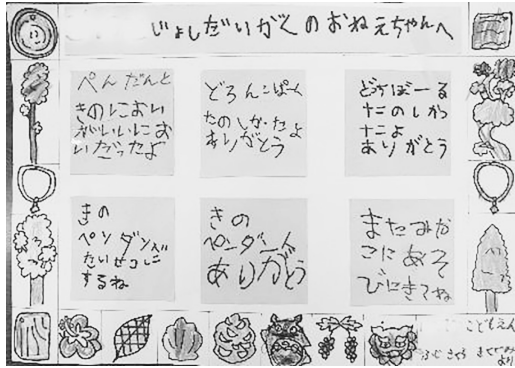 じょしだいがくのおねえちゃんへ
ぺんだんと
きのにおい
がいいにお
いだったよ
どろんこぱーく
たのしかったよ
ありがとう
どっぢぼーる
たのしかっ
たよ
ありがとう
きの
ペンダント
たいせつに
するね
きの
ペンダント
ありがとう
またみか
こにあそ
びにきてね
こどもえん
より